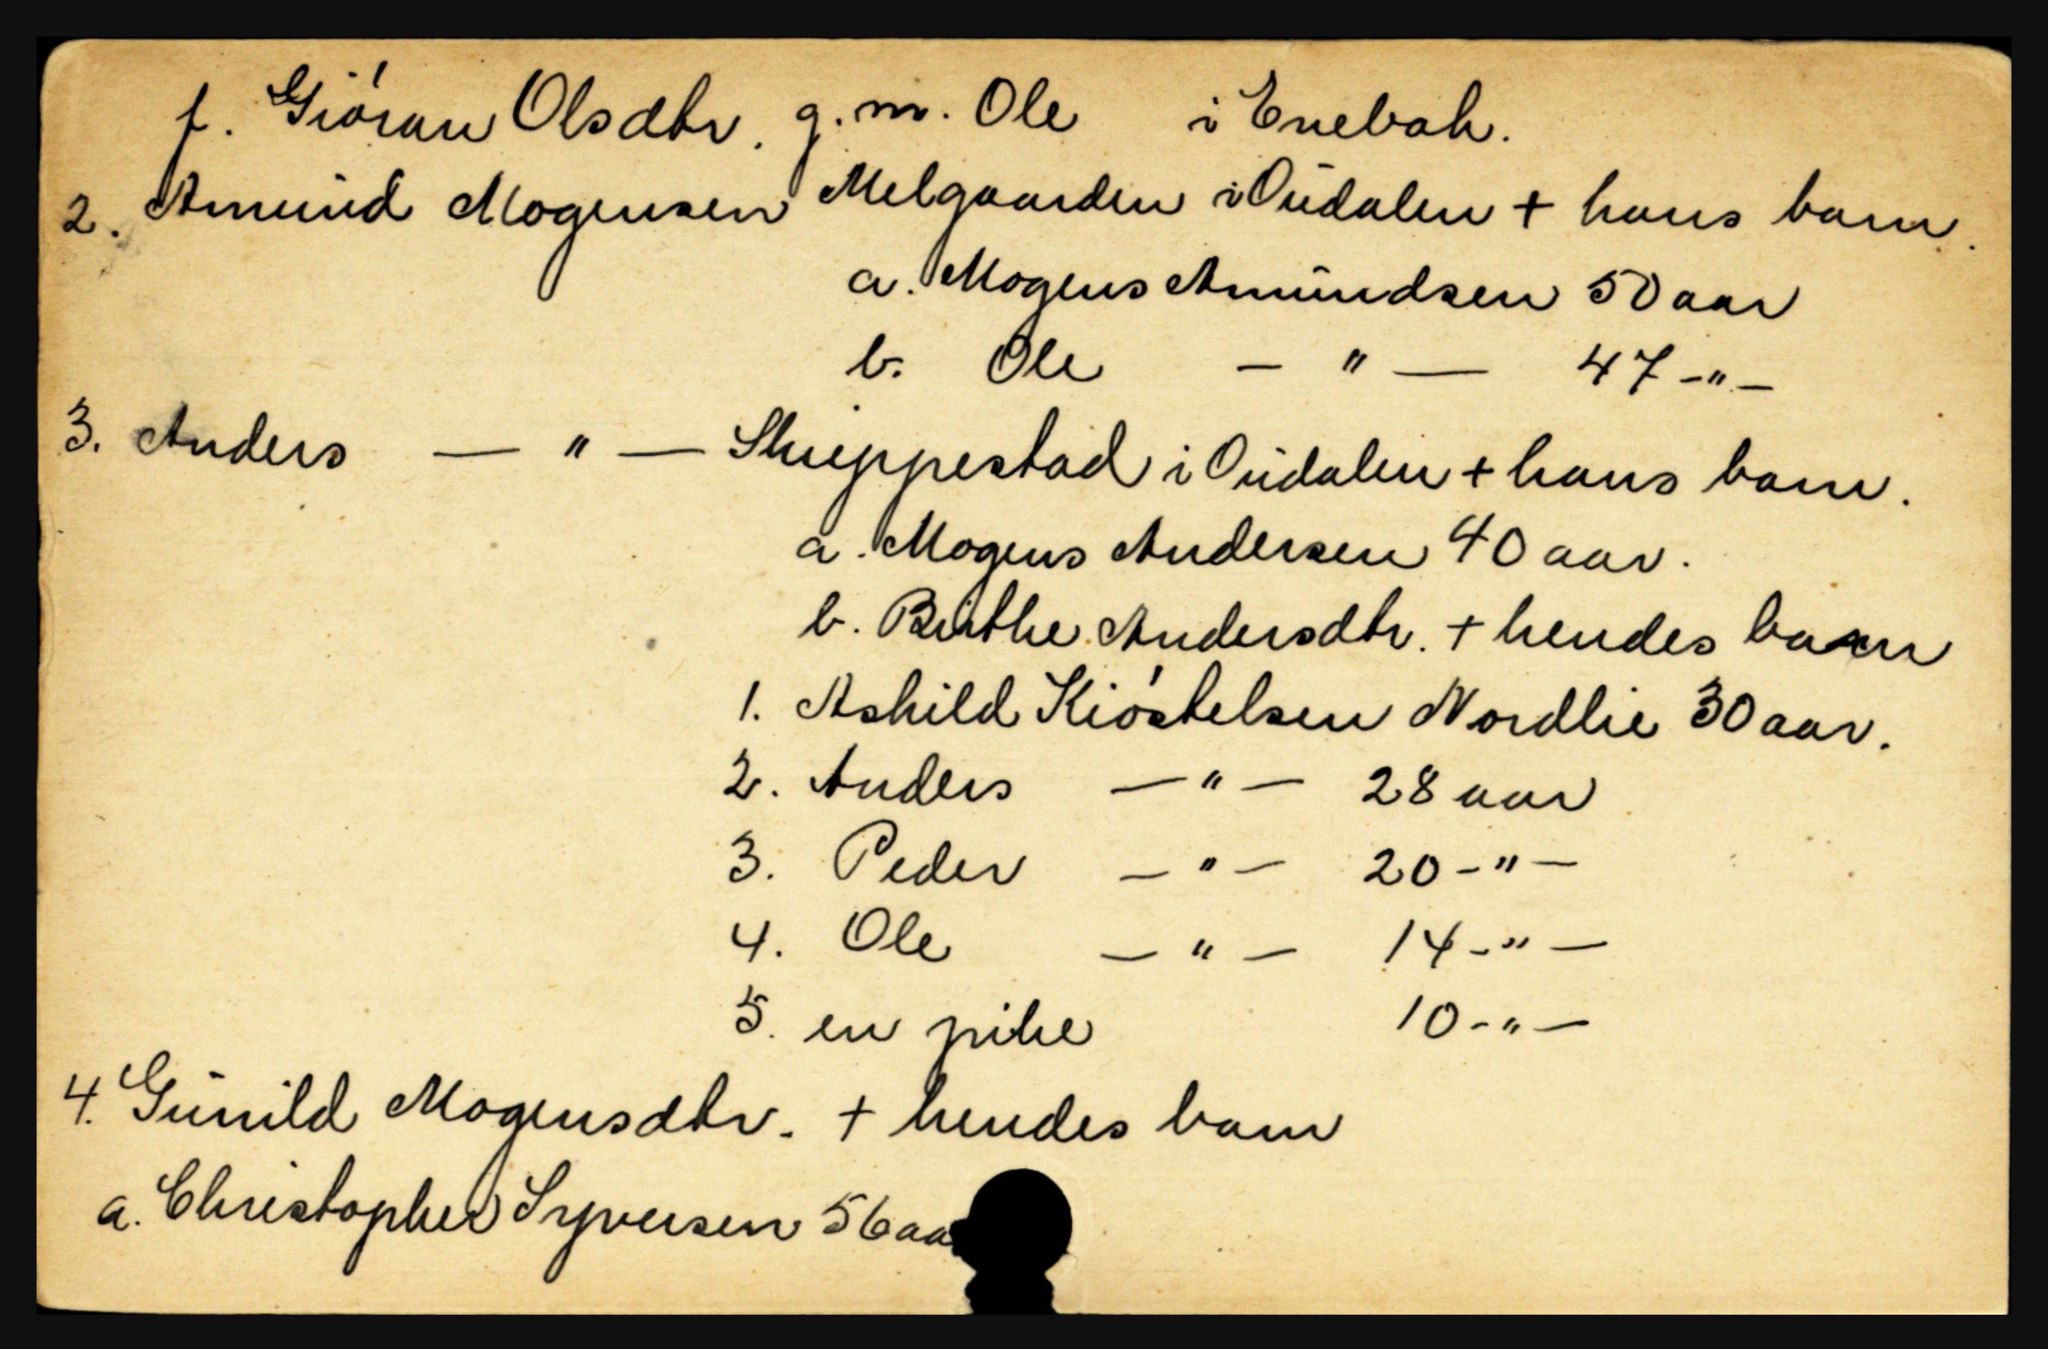 f. Gióran Olsdtr. g. m. Ole i Enebak.
2. Amund Mogensen Melgaarden i Oudalen + hans barn.
a. Mogens Amundsen 50 aar
b. Ole — " — 47 - " -
3. Anders — " — Skieppestad i Oudalen + hans barn.
a. Mogens Andersen 40 aar.
b. Birthe Andersdtr. + hendes barn
1. Askild Kióstelsen Nordlie 30 aar.
2. Anders — " — 28 aar
3. Peder — " — 20 - " -
4. Ole — " — 14 - " -
5. en pike 10 - " -
4. Gunild Mogensdtr. + hendes barn
a. Christopher Syversen 56 aa